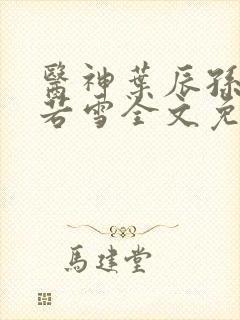 醫神葉辰孫
若雪全文免
馬建堂